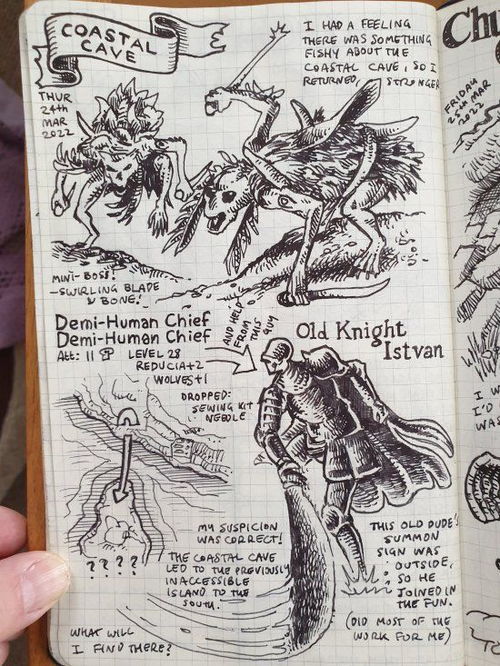 COASTAL
CAVE
I HAD A FEELING
THERE WAS SOMETHING
FISHY ABOUT THE
COASTAL CAVE, SO I
RETURNED, STRONGER
THUR
24th
MAR
2022
MINI-BOSS!
- SWIRLING BLADE
& BONE!
Demi-Human Chief
Demi-Human Chief
Att: 11
LEVEL 28
REDUCIA+2
WOLVES+1
DROPPED:
SEWING KIT
NEEDLE
AND HELP
FROM
THIS
GUY
Old Knight
Istvan
MY SUSPICION
WAS CORRECT!
THE COASTAL CAVE
LED TO THE PREVIOUSLY
INACCESSIBLE
ISLAND TO THE
SOUTH.
? ? ? ?
WHAT WILL
I FIND THERE?
THIS OLD DUDE'S
SUMMON
SIGN WAS
OUTSIDE,
SO HE
JOINED IN
THE FUN.
(DID MOST OF THE
WORK FOR ME)
Chu
FRIDAY
25th MAR
2022
I W
I'D
WAS